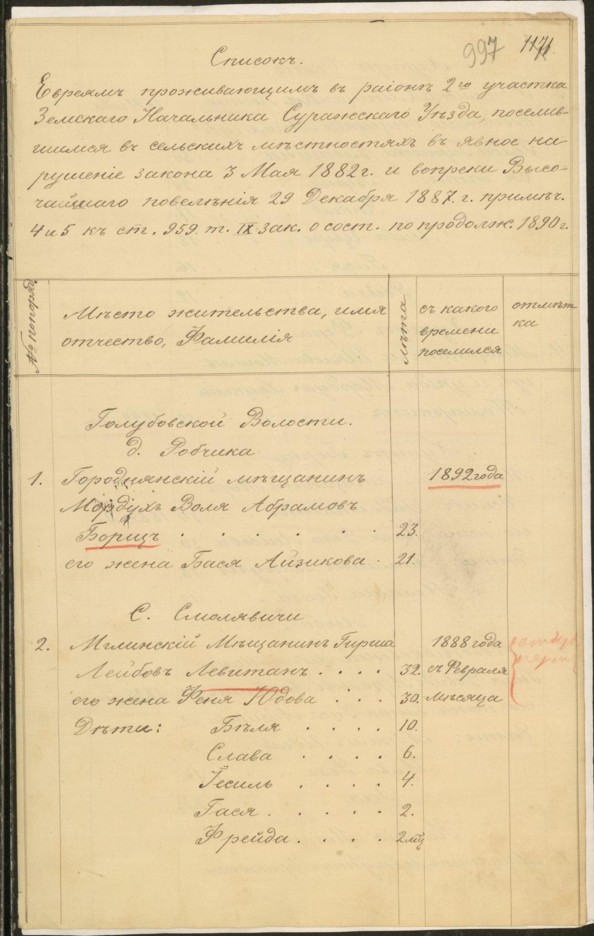 997
Списокъ.
Евреямъ проживающимъ въ районѣ 2го участка
Земскаго Начальника Суражскаго Уѣзда, поселив-
шимся въ сельскихъ мѣстностяхъ въ явное на-
рушеніе закона 3 Мая 1882 г. и вопреки Высо-
чайшаго повелѣнія 29 Декабря 1887. г. примѣч.
4 и 5 къ ст. 959. т. IX зак. о сост. по продолж. 1890 г.
№ по поряд.
Мѣсто жительства, имя
отчество, Фамилія
лѣта
съ какого
времени
поселился
отмѣт
ка
Голубовской Волости.
д. Робчика
1. Городнянскій мѣщанинъ 1892 года
Мордухъ Воля Абрамовъ
Борицъ . . . . . . 23.
его жена Бася Айзикова . 21.
С. Смолявичи
2. Мглинскій Мѣщанинъ Гирша 1888 года
Лейбовъ Левитанъ . . . . 32. съ Февраля
его жена Феня Юдова . . . 30. Мѣсяца
Дѣти: Бѣля . . . . 10.
Слава . . . . 6.
Гесиль . . . . 4.
Гася . . . . . 2.
Фрейда . . . . 2 мц